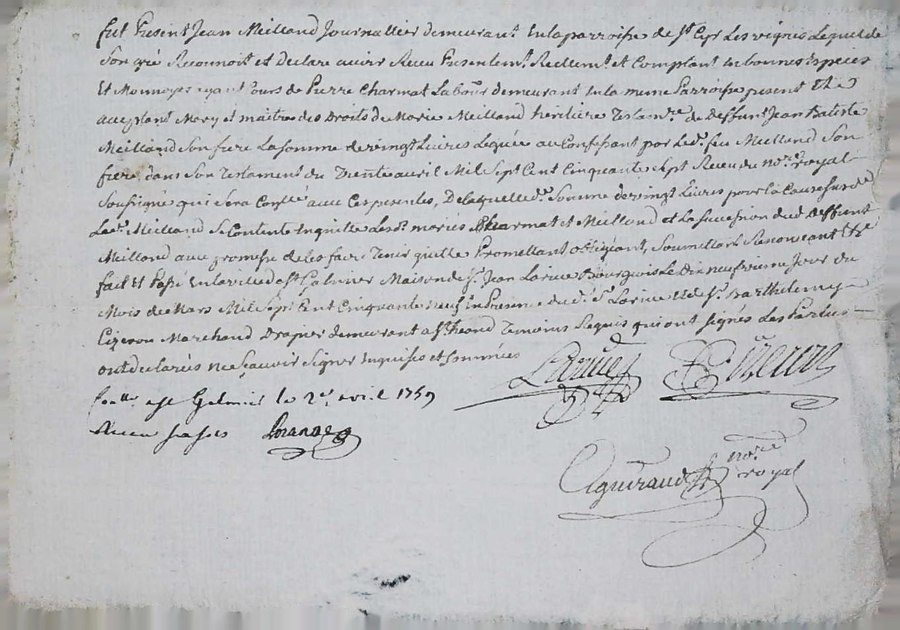 fut Present Jean Meilland Journallier demeurant en la parroisse de St Cyr Les vignes Lequel de
Son gré Reconnoit et Declare avoir Receu Presentemt. Reellemt. et Comptant en bonnes Especes
Et Monnoyes ayant Cours de Pierre Charmat Labour demeurant en la meme Parroisse present Et
acceptant Mary et maitre des Droits de Marie Meilland heritiere Testamre. de Deffunt Jean Batiste
Meilland Son frere La Somme de vingt Livres Leguée au Confessant par Led. feu Meilland Son
frere dans Son Testament du Trente avril Mil Sept Cent Cinquante Sept Receu du nore. royal
Soussigné qui Sera Conlle. avec Ces presentes, De laquelle de. Somme de vingt Livres pour la Cause susde.
Led. Meilland Se Contente En quitte Lesd. mariés Charmat et Meilland et La Succession dud. Deffunt
Meilland avec promesse de les faire Tenir quitte Promettant obligeant, Soumettant Renonceant Et
fait et Passé En la ville de St Galmier Maison de Sr. Jean Larüe Bourgeois Le Dix neufvieme Jour du
Mois de Mars Mil Sept Cent Cinquante neuf En Presence dud. Sr. Larüe Et de Sr. Barthelemy
Marchand Drapier demeurant a St heand Temoins Lequels qui ont Signés Les Parties
ont declarées ne Sçavoir Signer Enquises et Sommées
Larüe
Conllé. a St Galmier le 2e. avril 1759
Receu
Aguiraud nore. royal